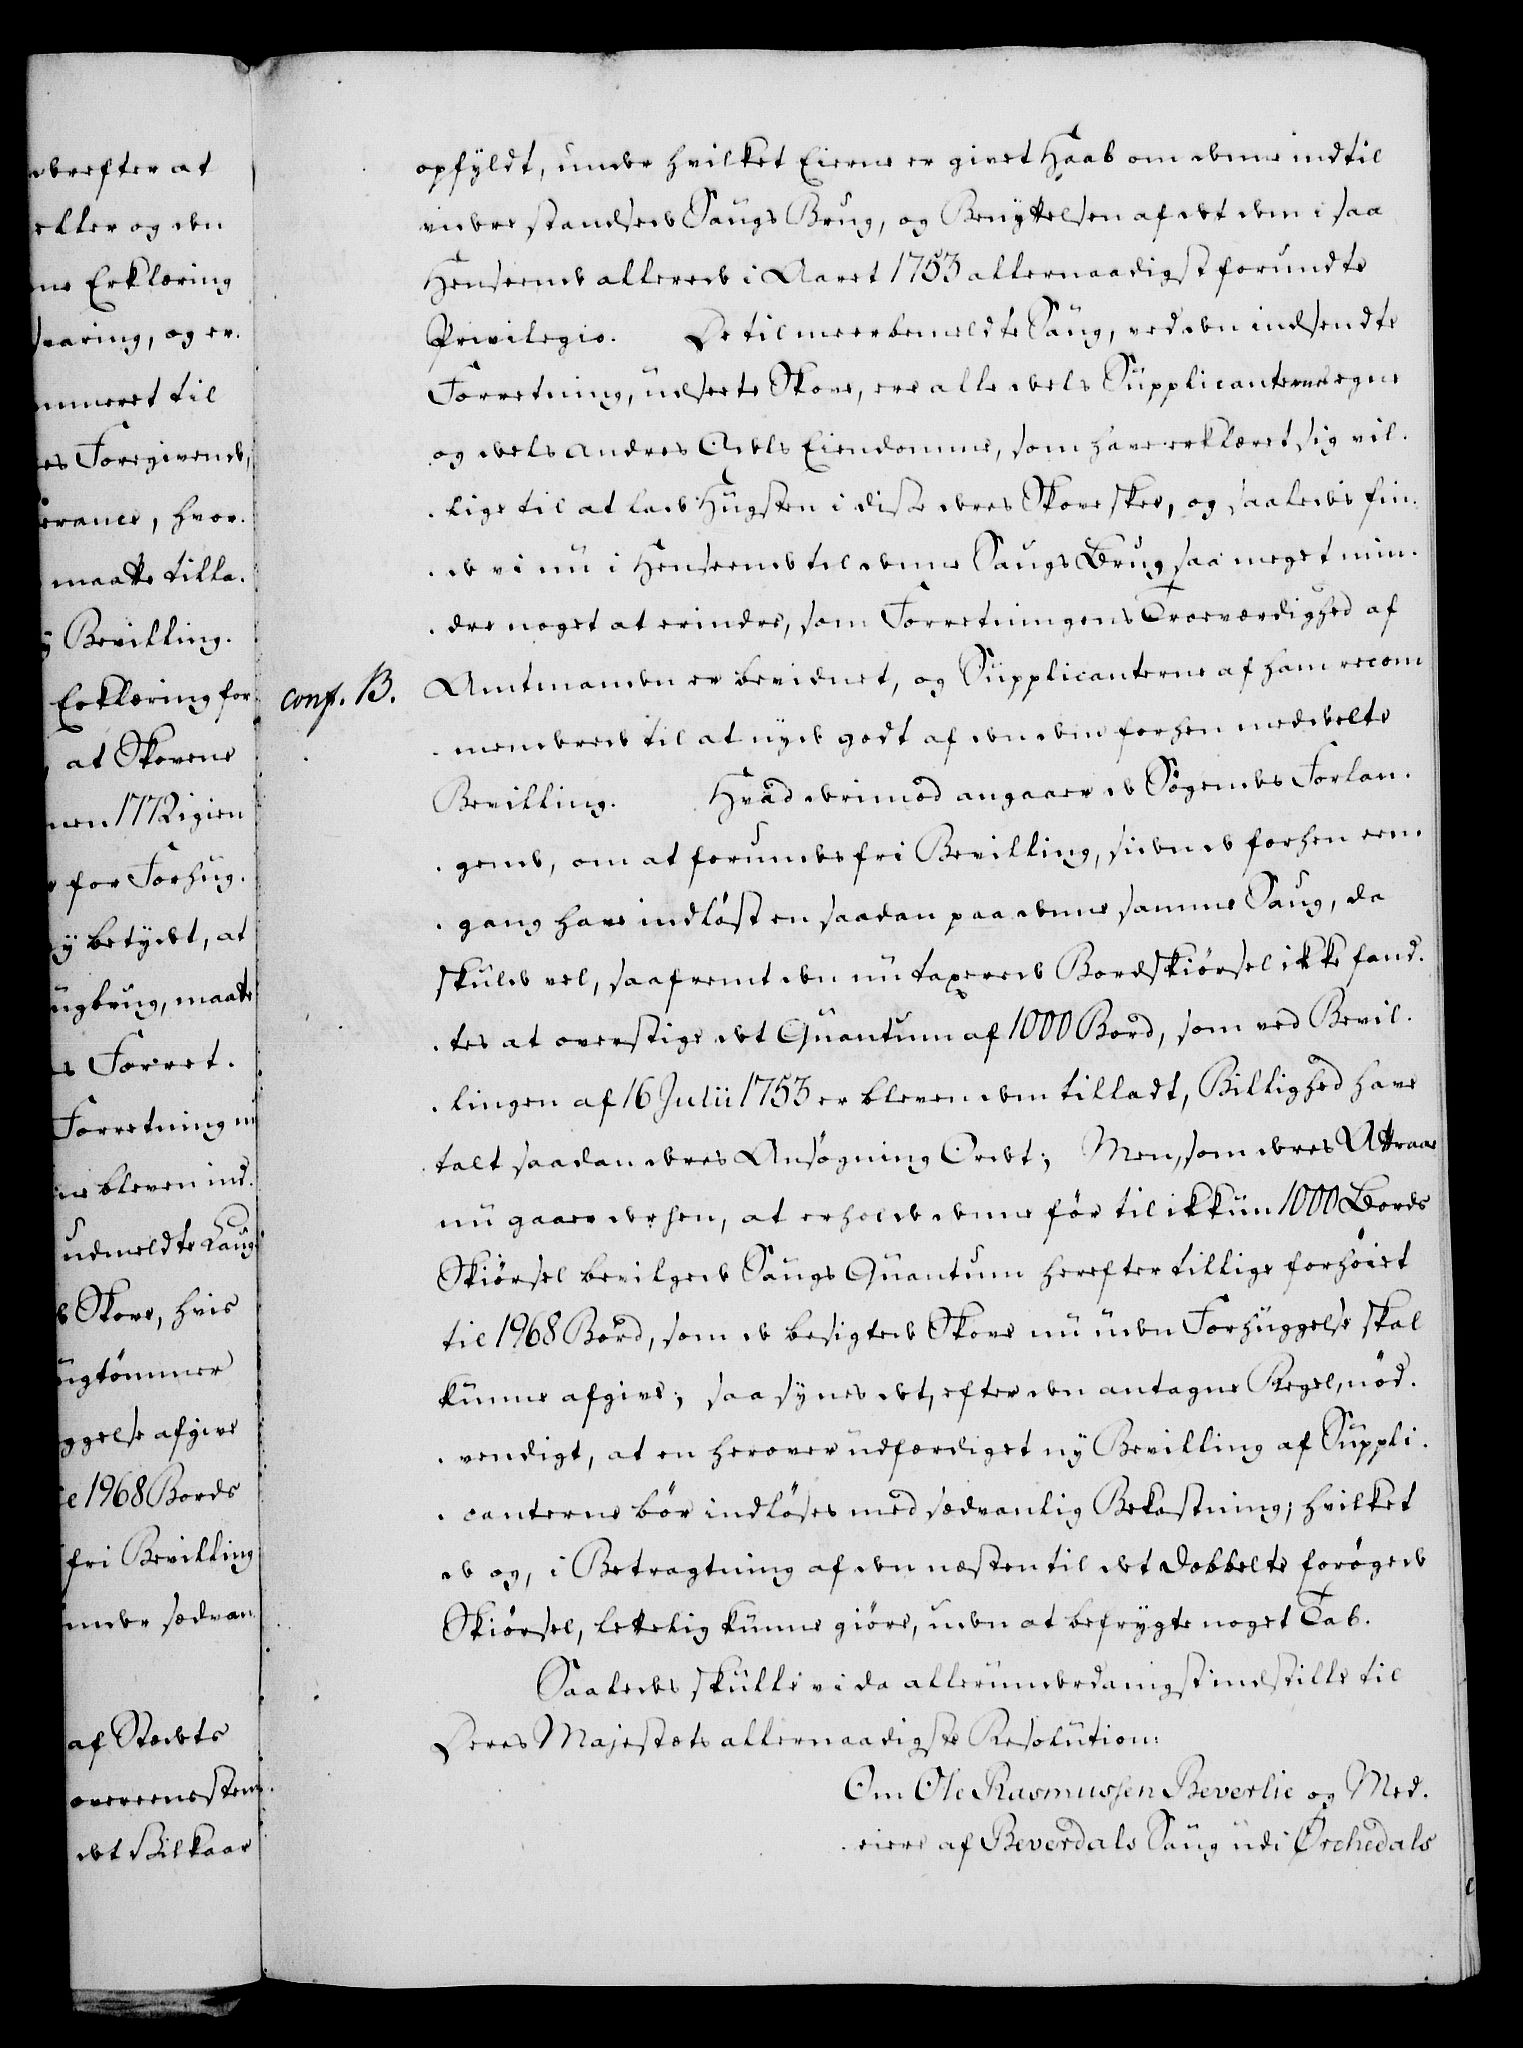 derefter at
eller og den
ne Erklæring
svaring, og er.
mmeret til
es Foregivende,
erance, hvor.
maatte tilla.
Bevilling.
Erklæring for
at Skovene
nen 1772 igien
for Forhug.
betydet, at
ugbrug, maatte
s Forret.
Forretning
ne bleven ind.
udmeldte Laug
Skove, hvis
ugtømmer
ggelse afgive
e 1968 Bords
fri Bevilling
under sædvan
af Stædets
overeenstem
det Vilkaar
opfyldt, under hvilket Eierne er givet Haab om denne indtil
videre standsede Saugs Brug, og Benyttelsen af det dem i saa
Henseende allerede i Aaret 1753 allernaadigst forundte
Privilegio. De til meerbemeldte Saug, ved den indsendte
Forretning, udseete Skove, ere alle deels Supplicanternes egne
og deels andres Odels Eiendomme, som have erklæret sig vil.
lige til at lade Hugsten i disse deres Skove skee, og saaledes fin.
de vi nu i Henseende til denne Saugs Brug saa meget min.
dre noget at erindre, som Forretningens Troeværdighed af
conf. B. Amtmanden er bevidnet, og Supplicanterne af ham recom
menderede til at nyde godt af den dem forhen meddeelte
Bevilling. Hvad derimod angaaer de Søgendes Forlan.
gende, om at forundes fri Bevilling, siden de forhen een.
gang have indløst en saadan paa denne samme Saug, da
skulde vel, saafremt den nu taxerede Bordskiørsel ikke fand.
tes at overstige det Quantum af 1000 Bord, som ved Bevil.
lingen af 16 Julii 1753 er bleven dem tilladt, Billighed have
talt saadan deres Ansøgning Ordet; Men, som deres Attraae
nu gaaer derhen, at erholde denne før til ikkun 1000 Bords
Skiørsel bevilgede Saugs Quantum herefter tillige forhøiet
til 1968 Bord, som de besigtede Skove nu uden Forhuggelse skal
kunne afgive; saa synes det, efter den antagne Regel, nød.
vendigt, at en herover udfærdiget ny Bevilling af Suppli.
canterne bør indløses med sædvanlig Bekostning; hvilket
de og, i Betragtning af den næsten til det dobbelte forøgede
Skiørsel, lettelig kunne giøre, uden at befrygte noget Tab.
Saaledes skulle vi da allerunderdanigst indstille til
Deres Majestæts allernaadigste Resolution:
Om Ole Rasmussen Beverlie og Med.
eiere af Beverdals Saug udi Ørchedals